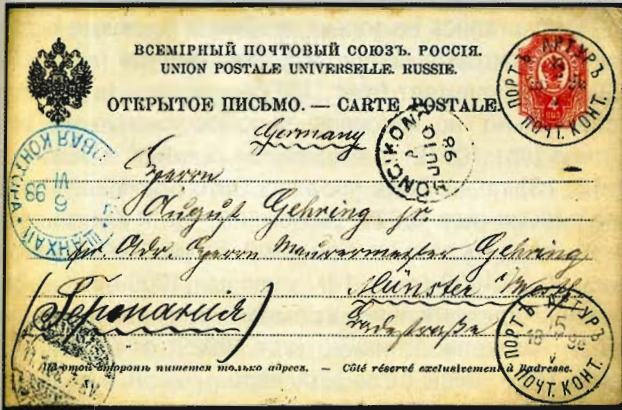 ВСЕМІРНЫЙ ПОЧТОВЫЙ СОЮЗЪ. РОССІЯ.
UNION POSTALE UNIVERSELLE. RUSSIE.
ОТКРЫТОЕ ПИСЬМО. — CARTE POSTALE.
ПОРТЪ АРТУРЪ
ПОЧТ. КОНТ.
Germany
HONGKONG
2
JU 10
98
ШАНХАЙ
ВАЯ КОНТОРА
6
VI
98
Herrn
August Gehring jr.
Adr. Herrn Maurermeister Gehring
Münster i/Westf
(Германія)
ПОРТЪ АРТУРЪ
15
18 98
V
ПОЧТ. КОНТ.
На этой сторонѣ пишется только адресъ. — Côté réservé exclusivement à l'adresse.